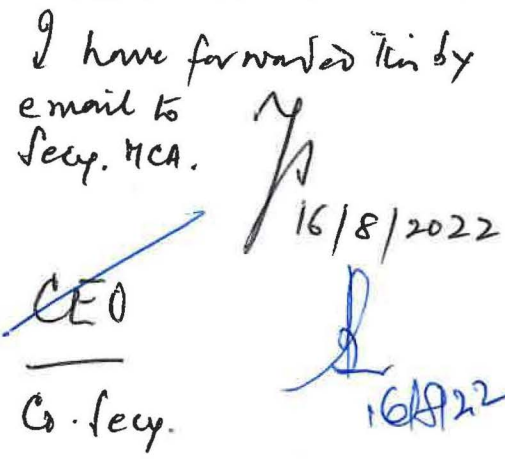 I have forwarded this by
email to
Secy. MCA.
16/8/2022
CEO
Co. Secy.
16/8/22